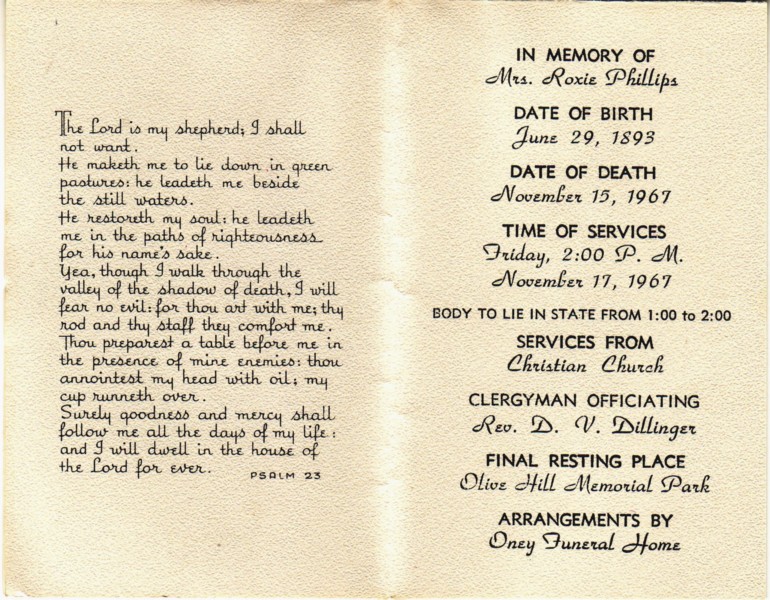 The Lord is my shepherd; I shall
not want.
He maketh me to lie down in green
pastures: he leadeth me beside
the still waters.
He restoreth my soul: he leadeth
me in the paths of righteousness
for his name's sake.
Yea, though I walk through the
valley of the shadow of death, I will
fear no evil: for thou art with me; thy
rod and thy staff they comfort me.
Thou preparest a table before me in
the presence of mine enemies: thou
annointest my head with oil; my
cup runneth over.
Surely goodness and mercy shall
follow me all the days of my life:
and I will dwell in the house of
the Lord for ever.
PSALM 23
IN MEMORY OF
Mrs. Roxie Phillips
DATE OF BIRTH
June 29, 1893
DATE OF DEATH
November 15, 1967
TIME OF SERVICES
Friday, 2:00 P. M.
November 17, 1967
BODY TO LIE IN STATE FROM 1:00 to 2:00
SERVICES FROM
Christian Church
CLERGYMAN OFFICIATING
Rev. D. V. Dillinger
FINAL RESTING PLACE
Olive Hill Memorial Park
ARRANGEMENTS BY
Oney Funeral Home